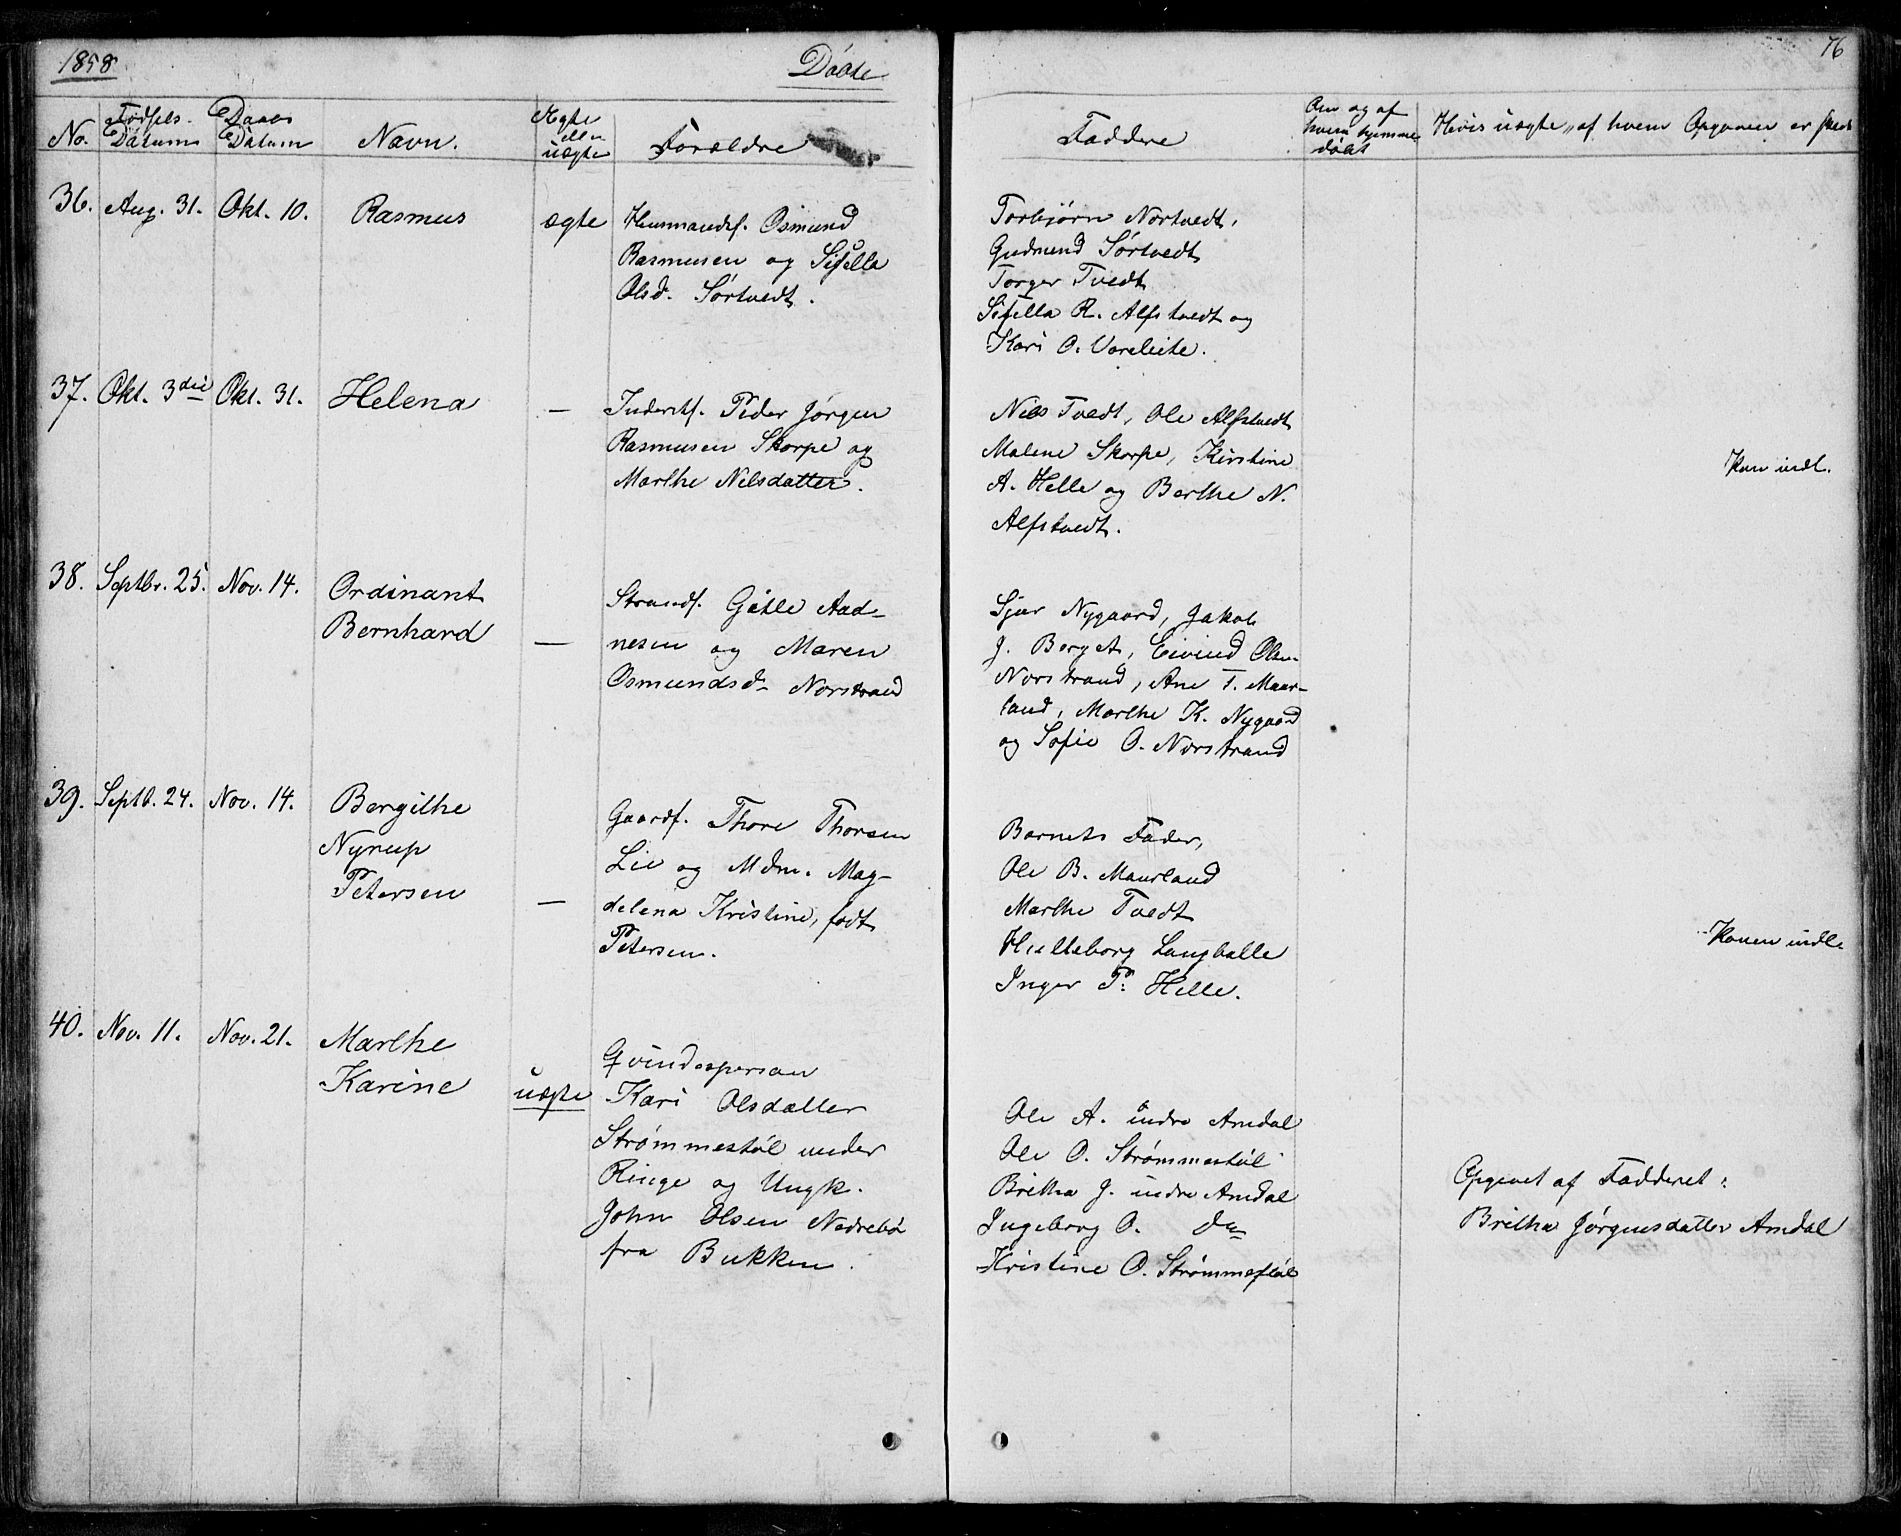 1858
Døbte
76
No.
Fødsels-
Datum
Daabs
Datum
Navn.
Ægte
eller
uægte
Forældre
Faddere
Om og af
hvem hjemme-
døbt
Hvis uægte, af hvem Opgaven er skeet
36. Aug. 31. Okt. 10. Rasmus ægte
Huusmandsf. Osmund
Rasmusen og Sisella
Olsd. Sørtvedt.
Torbjørn Nortvedt,
Gudmund Sørtvedt
Torger Tvedt
Sisella R. Alfstvedt og
Kari O. Voreleite.
37. Okt. 3die Okt. 31. Helena —
Inderstf. Peder Jørgen
Rasmusen Skorpe og
Marthe Nelsdatter.
Nels Tvedt, Ole Alfstvedt
Malene Skorpe, Kirstine
A. Helle og Berthe N.
Alfstvedt.
indl.
38. Septbr. 25. Nov. 14. Ordinant
Bernhard —
Strandf. Gitle Aad-
nesen og Maren
Osmundsd. Norstrand
Sjur Nygaard, Jakob
J. Berget, Eivind Olsen
Norstrand, Ane T. Maur-
land, Marthe K. Nygaard
og Sofie O. Norstrand
39. Septb. 24. Nov. 14. Bergithe
Nyrup
Petersen —
Gaardf. Thore Thorsen
Lie og Mdm. Mag-
delena Kristine, født
Petersen.
Barnets Fader,
Ole B. Maurland
Marthe Tvedt
Langballe
Inger P. Helle.
Konen indl.
40. Nov. 11. Nov. 21. Marthe
Karine uægte
Qvindesperson
Kari Olsdatter
Strømmestøl under
Ringe og Ungk.
John Olsen Nedrebø
fra Bukken.
Ole A. indre Arndal
Ole O. Strømmestøl
Britha J. indre Arndal
Ingeborg O. do
Kristine O. Strømmestøl
Opgivet af Fadderet:
Britha Jørgensdatter Arndal